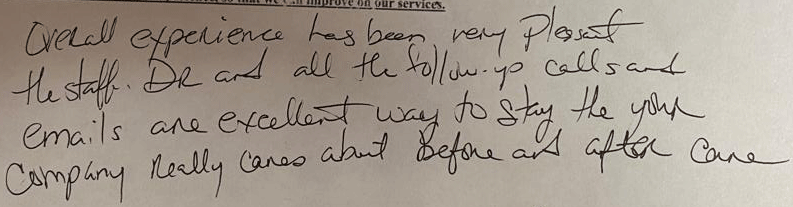 so that we can improve on our services.
Overall experience has been very Plesent
the staff. DR and all the follow-up calls and
emails are excellent way to stay the your
Company Really cares about Before and after Care